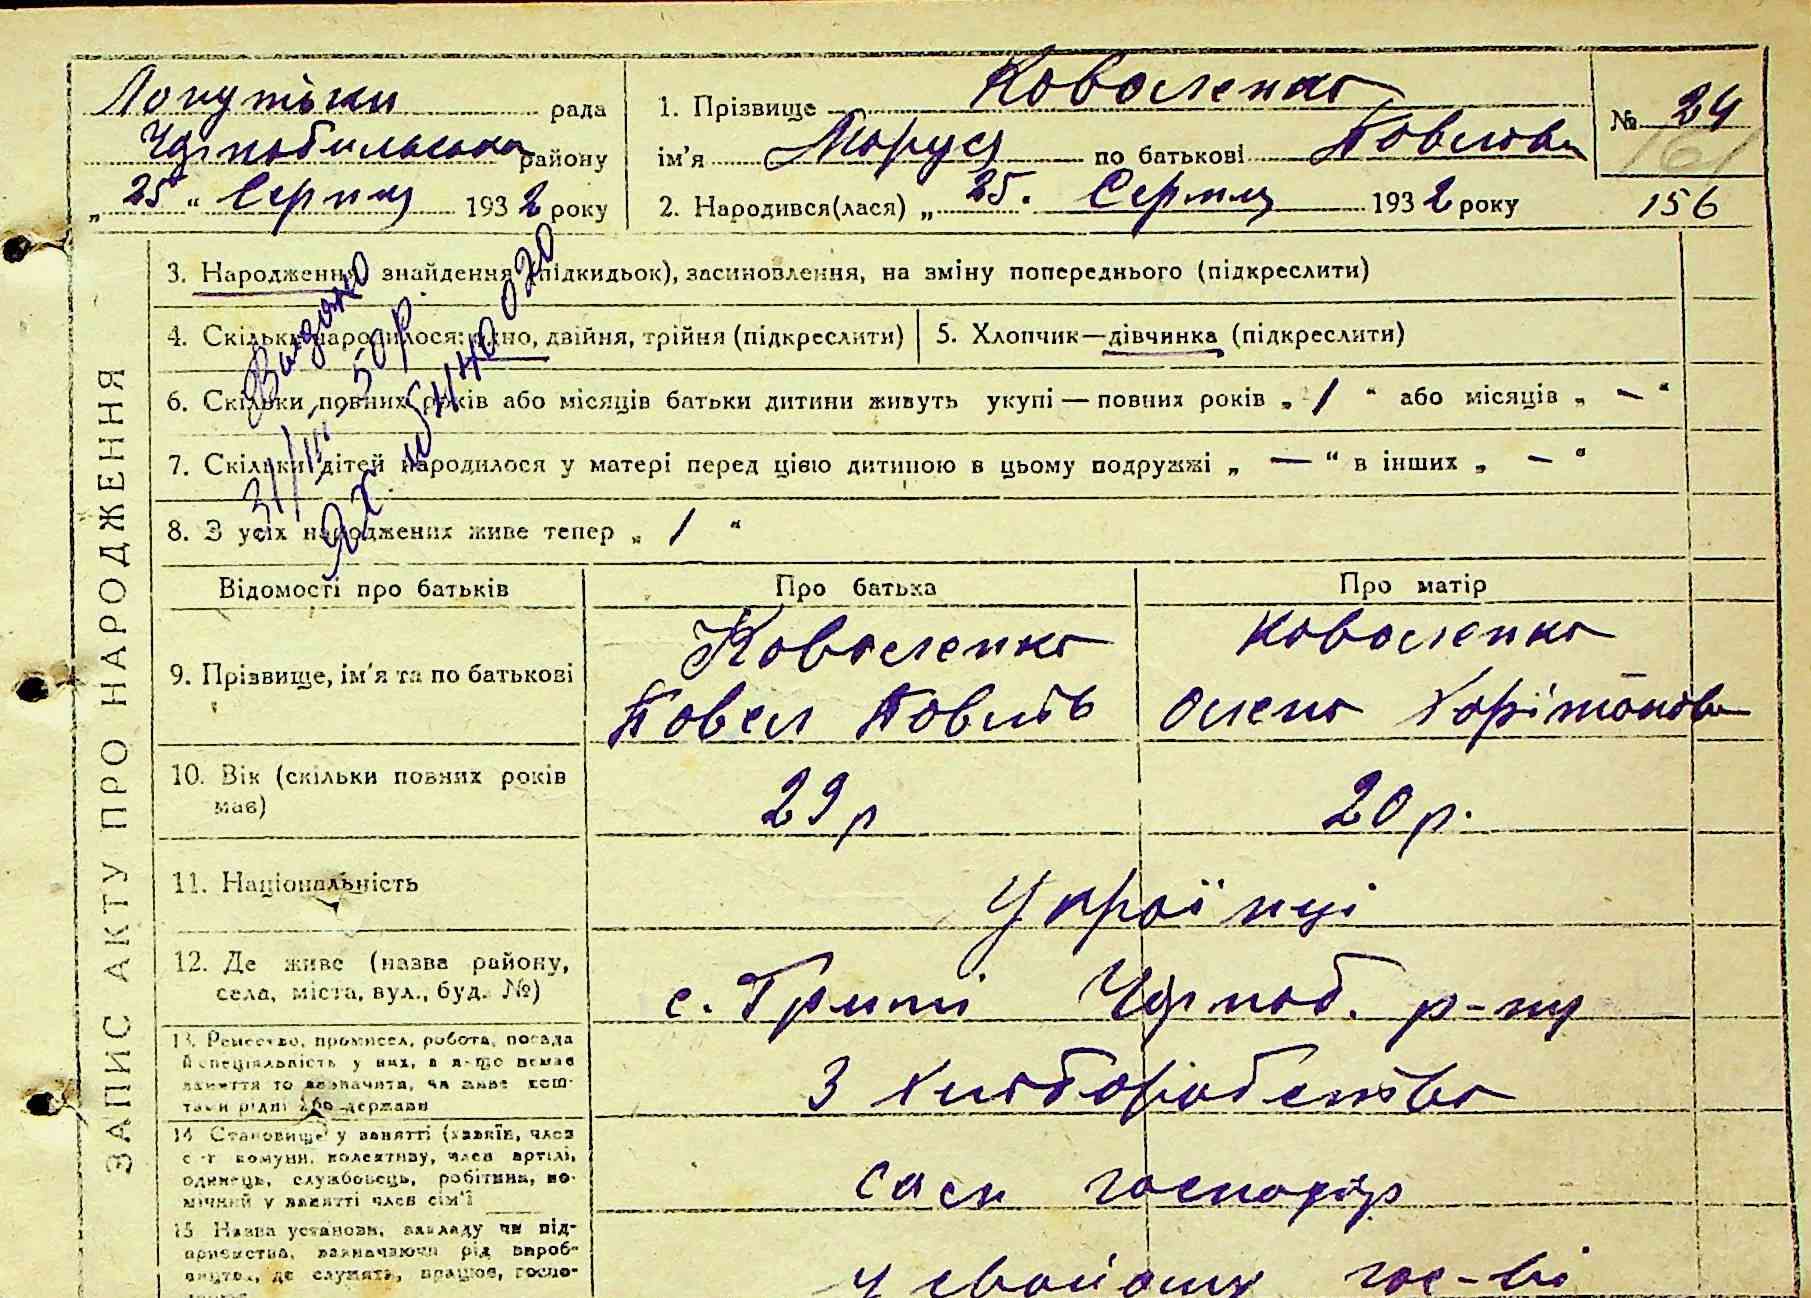 Лопутьки рада
Чорнобильська району
„25“ Серпня 1932 року
1. Прізвище Коваленко
ім'я Маруся по батькові Повлова
2. Народився(лася) „25. Серпня 1932 року
№ 24
161
156
3. Народження, знайдення (підкидьок), засиновлення, на зміну попереднього (підкреслити)
4. Скільки народилося: одно, двійня, трійня (підкреслити)
5. Хлопчик—дівчинка (підкреслити)
6. Скільки повних років або місяців батьки дитини живуть укупі — повних років „1“ або місяців „—“
7. Скільки дітей народилося у матері перед цією дитиною в цьому подружжі „—“ в інших „—“
8. З усіх народжених живе тепер „1“
Видано
31/III-50р.
ЯХ № 440020
ЗАПИС АКТУ ПРО НАРОДЖЕННЯ
Відомості про батьків
Про батька
Про матір
9. Прізвище, ім'я та по батькові
Коваленко
Повел Повлов
Коваленко
Олена Харітонова
10. Вік (скільки повних років має)
29 р
20 р.
11. Національність
Українці
12. Де живе (назва району, села, міста, вул., буд. №)
с. Чорноб. р-ну
13. Ремество, промисел, робота, посада й спеціяльність у них, а якщо немає заняття то зазначити, чи живе коштами рідні або держави
З хліборобства
14. Становище у занятті (хазяїн, член с-г комуни, колективу, член артілі, одинець, службовець, робітник, помічний у занятті член сім'ї
сам господар
15. Назва установи, закладу чи підприємства, зазначаючи рід виробництва, де служать, працює, госпо-
у свойому гос-ві